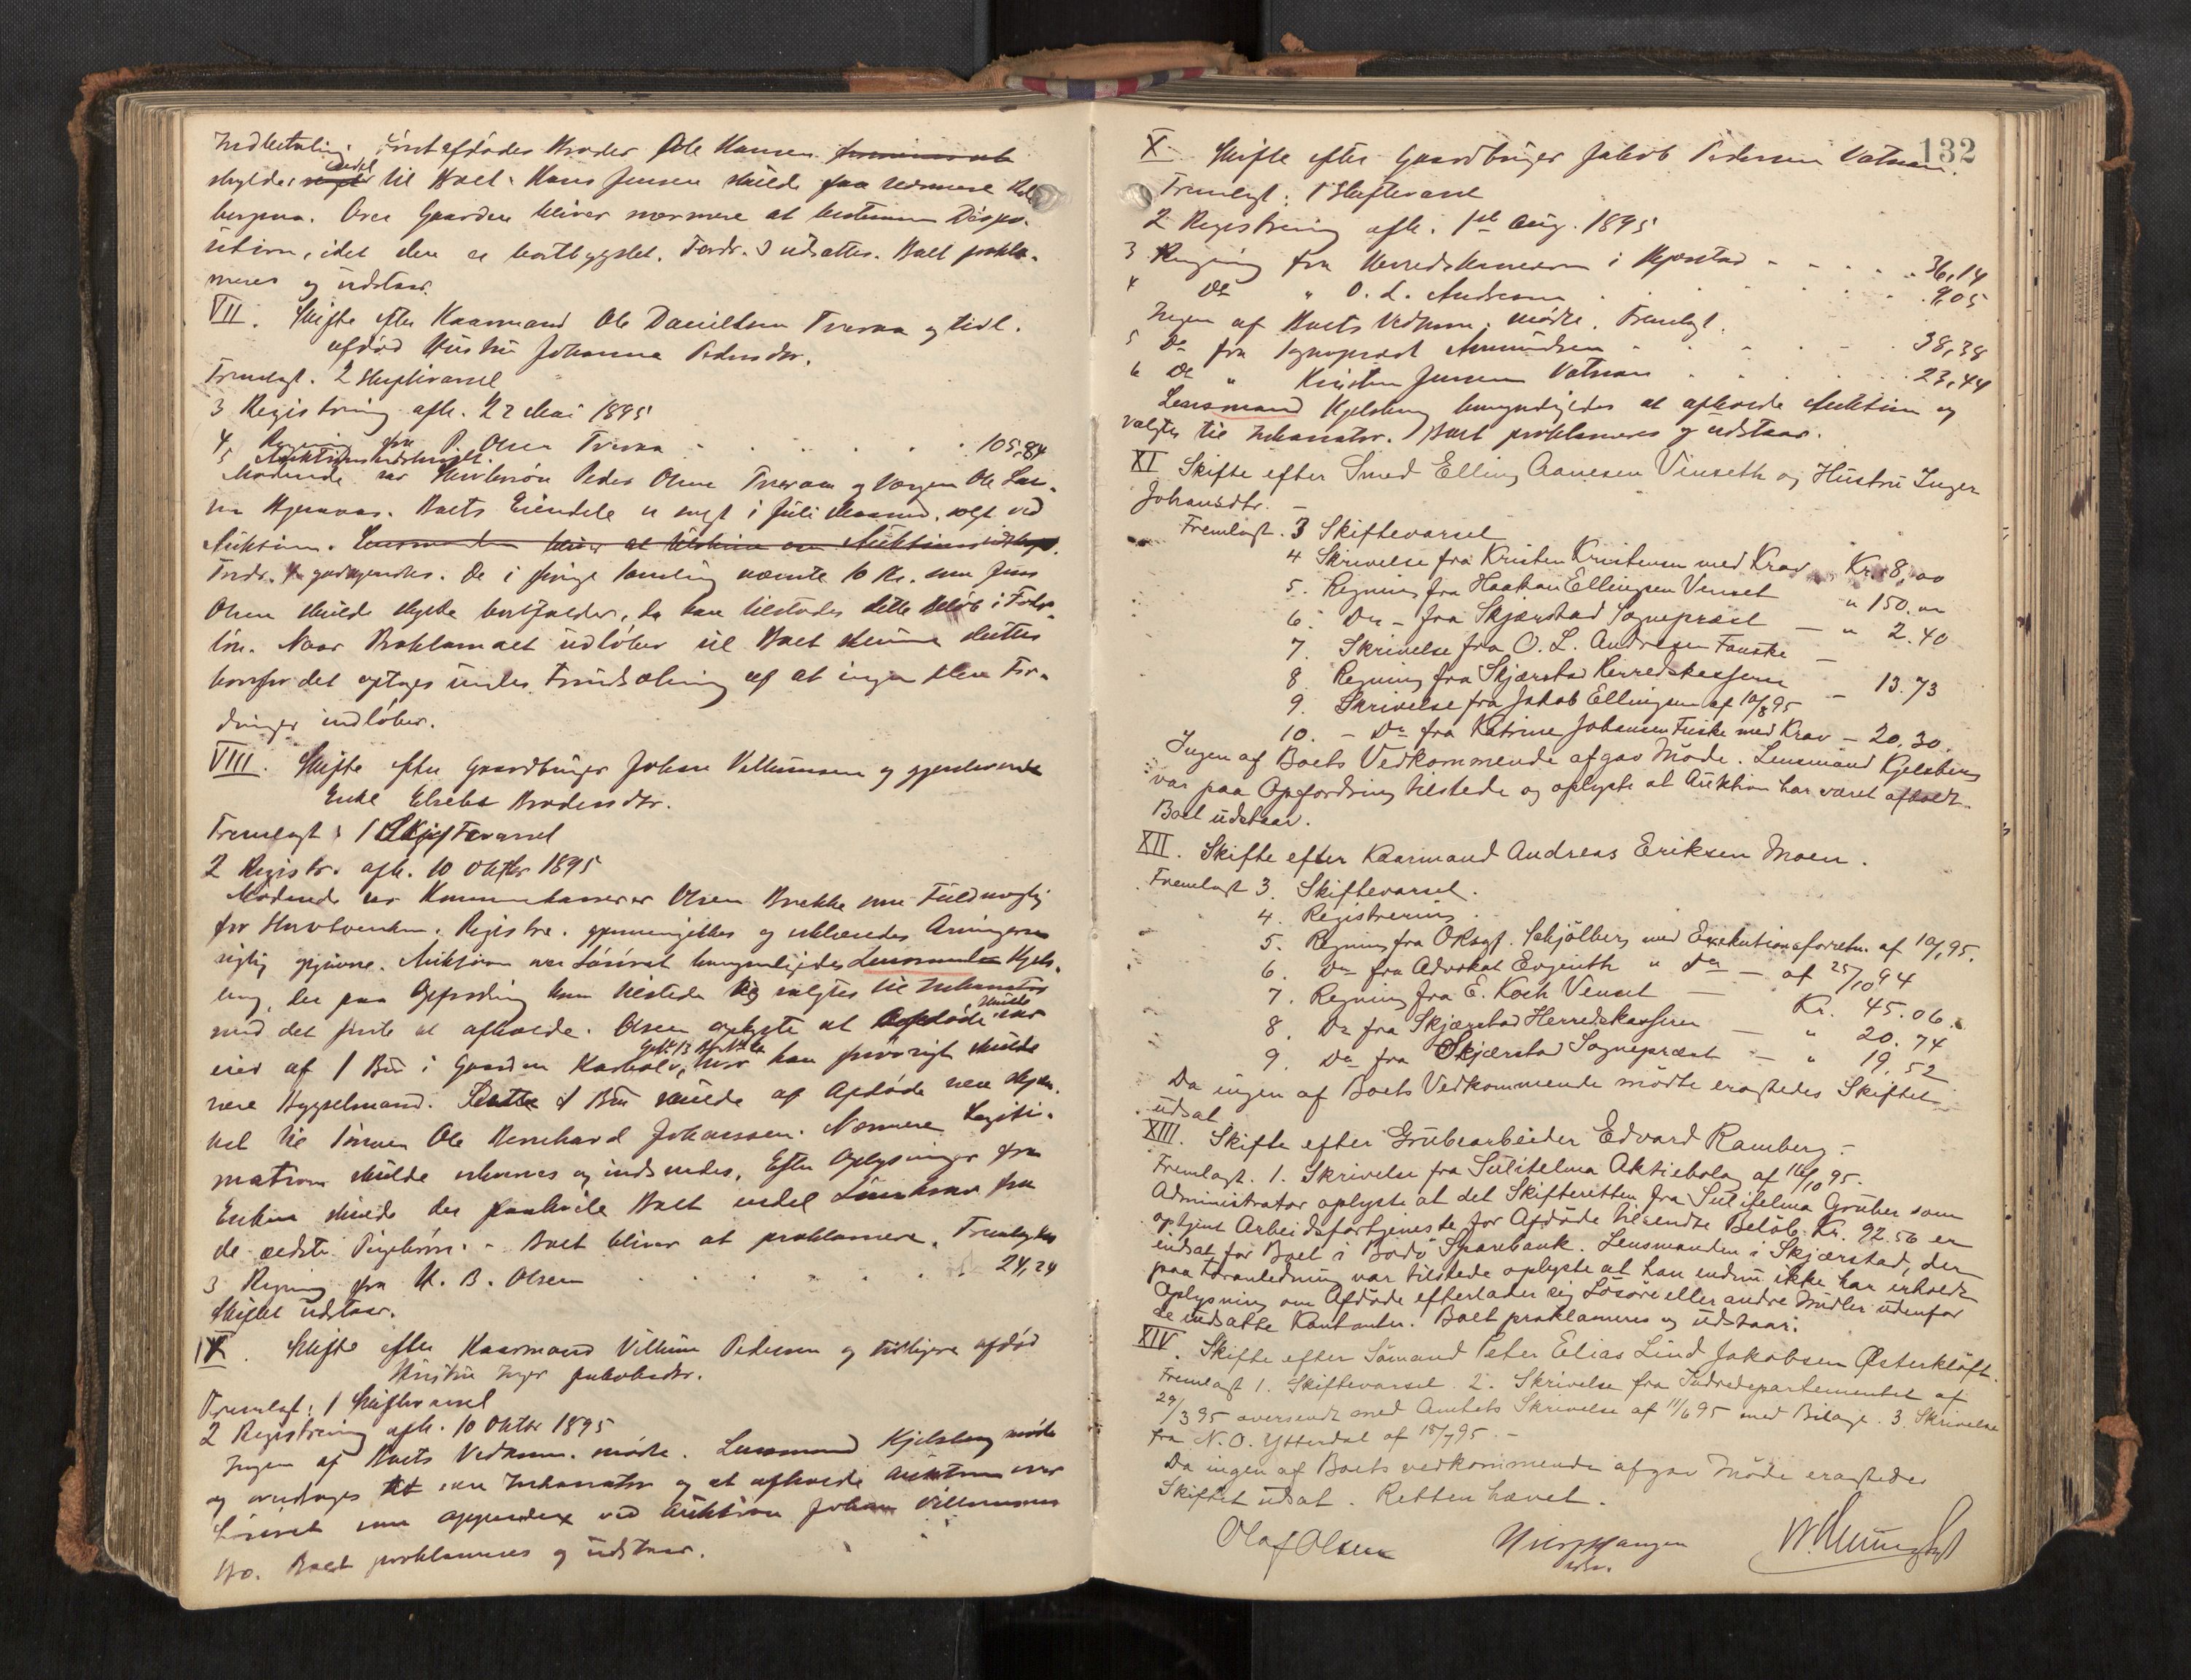 Indbetaling Ole Hansen
skylder endel til Boet. Hans Jensen skulde faa nærmere
Over Gaarden bliver nærmere at bestemme Dispo-
sition, idet den er bortbygslet. Fordr. 3 udsættes. Boet prokla-
meres og udstaar.
VII. Skifte efter Kaarmand Ole Danielsen Tveraa og tidl.
afdød Hustru Johanna Pedersdtr.
Fremlagt. 2 Skiftevarsel
3 Registrering afh. 22 Mai 1895
4, Regning fra P. Olsen Tveraa . . . . . 105,84
5 Auktionsudskrift.
Mødende var Peder Olsen Tveraa og Værgen Ole
Boets Eiendele er solgt i Juli Maaned, solgt ved
Auktion. Lensmanden bliver at tilskrive om Auktionsudskrift.
Fordr. 4 godkjendes. De i forrige Samling nævnte 10 Kr. som Jens
Olsen skulde skylde bortfalder, da han tilstodes dette Beløb i
Naar Proklamaet udløber vil Boet kunne sluttes
hvorfor det optages under Forudsætning af at ingen flere For-
dringer indløber.
VIII. Skifte efter Gaardbruger Johan Villumsen og gjenlevende
Enke Elsebet
Fremlagt: 1 Skiftevarsel
2 Registr. afh. 10 Oktbr 1895
Mødende var Kommunekasserer Olsen Brække som Fuldmægtig
for Registr. gjennemgikkes og erklæredes Arvingerne
rigtig opgivne. Auktion over Løsøret bemyndigedes Lensmanden Kjels-
berg, der paa Opfordring kom tilstede og valgtes til Inkassator
med det første at afholde. Olsen oplyste at Afdøde skulde
eier af 1 Bu i Gaarden hvor han forøvrigt skulde
være Bygselmand. Dette 1 Bu skulde af Afdøde være skjæn-
ket til Sønnen Ole Bernhard Johanssen. Nærmere Legiti-
mation skulde erhverves og indsendes. Efter Oplysninger fra
Enken skulde der paahvile Boet endel Lønskrav fra
de ældste Pigebørn. - Boet bliver at proklamere. Fremlagdes
3 Regning fra H. B. Olsen . . . . . 24,24
Skiftet udstaar.
IX. Skifte efter Kaarmand Villum Pedersen og tidligere afdød
Hustru Inger Jakobsdtr.
Fremlagt: 1 Skiftevarsel
2 Registrering afh. 10 Oktbr 1895
Ingen af Boets Vedkom. mødte. Lensmand Kjelsberg mødte
og overdroges at være Inkassator og at afholde Auktion over
Løsøret som appendix ved Auktion Johan Villumsens
Bo. Boet proklameres og udstaar.
132
X. Skifte efter Gaardbruger Jakob Pedersen Vatnan.
Fremlagt: 1 Skiftevarsel
2 Registrering afh. 1st Aug. 1895
3 Regning fra Herredskassereren i Skjerstad - - - - 36,14
4 Do " O. L. Andresen . . . . . 9,05
Ingen af Boets Vedkom. mødte. Fremlagt.
5 Do fra Sogneprest Amundsen - - - - 38,38
6 Do " Kristen Jensen Vatnan . . . . . 23,44
Lensmand Kjelsberg bemyndigedes at afholde Auktion og
valgtes til Inkassator. Boet proklameres og udstaar.
XI Skifte efter Smed Elling Aanesen Venseth og Hustru Inger
Johansdtr. -
Fremlagt. 3 Skiftevarsel
4 Skrivelse fra Kristen Kristensen med Krav Kr. 8,00
5. Regning fra Haakon Ellingsen Venset " 150.00
6. Do - fra Skjærstad Sogneprest - " 2.40
7. Skrivelse fra O. L. Andresen Fauske -
8 Regning fra Skjærstad Herredskasserer - 13.73
9. Skrivelse fra Jakob Ellingsen af 10/8 95
10. - Do fra Katrine Johansen Fuske med Krav - 20.30.
Ingen af Boets Vedkommende afgav Møde. Lensmand Kjelsberg
var paa Opfordring tilstede og oplyste at Auktion har været afholdt.
Boet udstaar.
XII. Skifte efter Kaarmand Andreas Eriksen Moen.
Fremlagt 3. Skiftevarsel.
4. Registrering.
5. Regning fra Oksgf. Schjølberg med Exekutionsforretn. af 10/1 95.
6. Do fra Advokat Evjenth " do - af 25/10 94
7. Regning fra E. Koch Venset - Kr. 45.06.
8. Do fra Skjærstad Herredskasserer - " 20.74
9. Do fra Skjærstad Sogneprest - " 19.52
Da ingen af Boets Vedkommende mødte eragtedes Skiftet
udsat
XIII. Skifte efter Grubearbeider Edvard Ramberg. -
Fremlagt. 1. Skrivelse fra Sulitelma Aktiebolag af 16/10 95.
Administrator oplyste at det Skifteretten fra Sulitelma Gruber som
optjent Arbeidsfortjeneste for Afdøde tilsendte Beløb Kr. 92.56 er
indsat for Boet i Bodø Sparebank. Lensmanden i Skjærstad, der
paa Foranledning var tilstede oplyste at han endnu ikke har erholdt
Oplysning om Afdøde efterlader sig Løsøre eller andre Midler udenfor
de indsatte Kontanter. Boet proklameres og udstaar.
XIV. Skifte efter Sømand Peter Elias Lind Jakobsen Østerkløft.
Fremlagt 1. Skiftevarsel 2. Skrivelse fra Indredepartementet af
29/3 95 oversendt med Amtets Skrivelse af 11/6 95 med Bilage. 3. Skrivelse
fra N. O. Ytterdal af 18/7 95. -
Da ingen af Boets vedkommende afgav Møde eragtedes
Skiftet udsat. Retten hævet.
Olaf Olsen